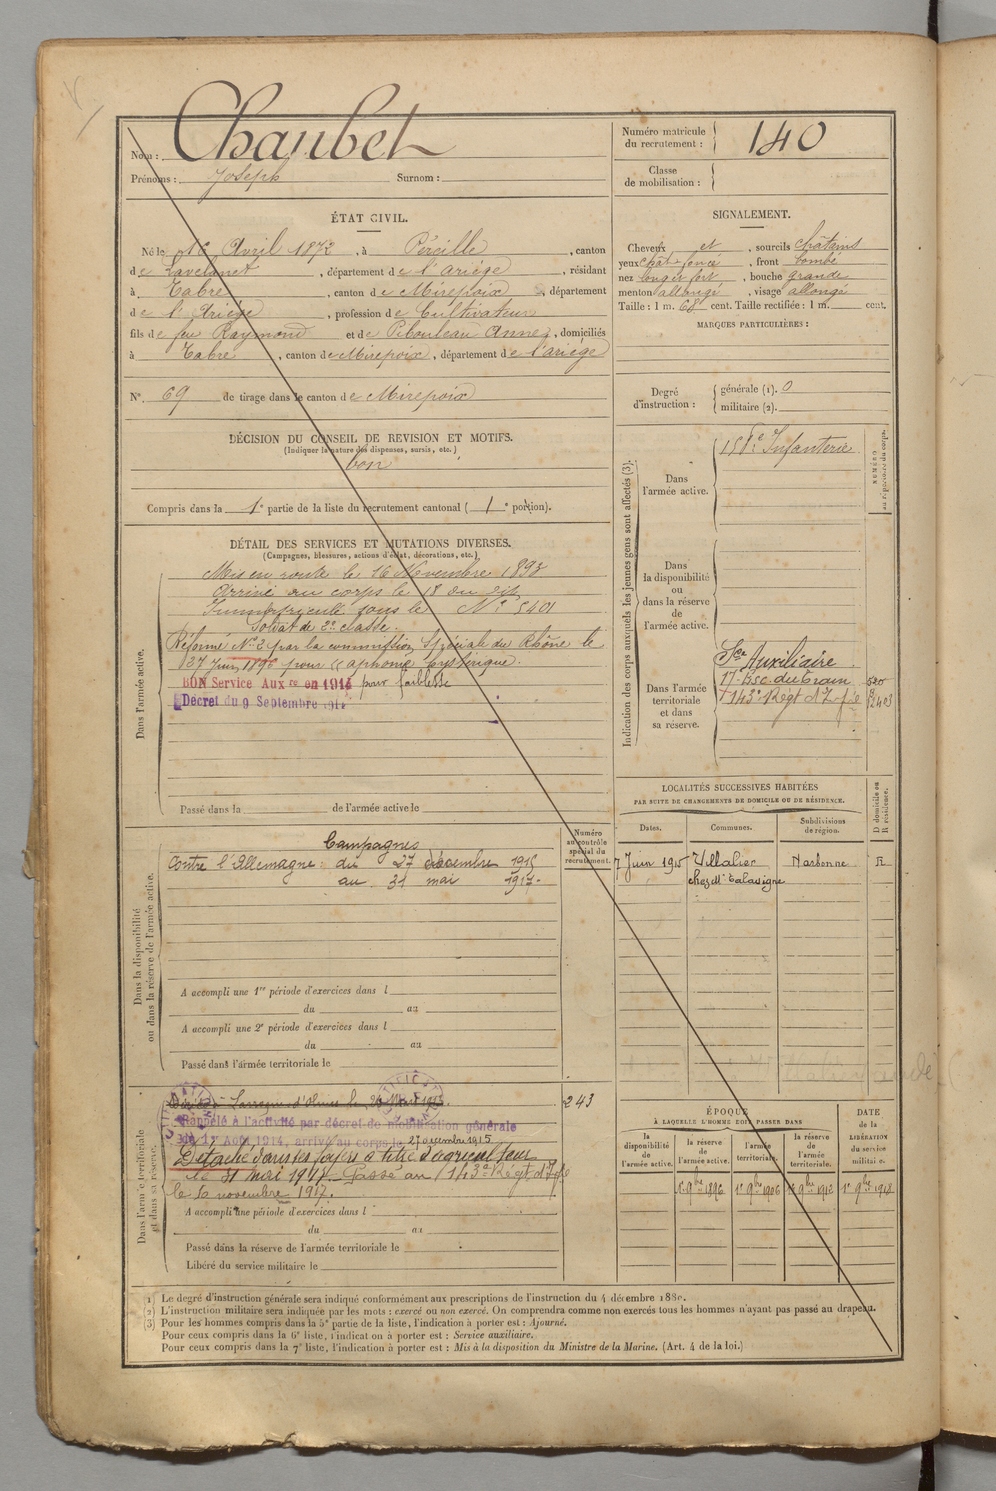 Nom : Chaubet
Prénoms : Joseph Surnom :
Numéro matricule du recrutement : 140
Classe de mobilisation :
ÉTAT CIVIL.
Né le 16 Avril 1872, à Péreille, canton
de Lavelanet, département de l'Ariége, résidant
à Tabre, canton de Mirepoix, département
de l'Ariége, profession de Cultivateur
fils de feu Raymond et de Pibouleau Anne, domiciliés
à Tabre, canton de Mirepoix, département de l'ariége
N° 69 de tirage dans le canton de Mirepoix
DÉCISION DU CONSEIL DE REVISION ET MOTIFS.
(Indiquer la nature des dispenses, sursis, etc.)
bon
Compris dans la 1e partie de la liste du recrutement cantonal (1e portion).
SIGNALEMENT.
Cheveux et, sourcils châtains
yeux chât. foncé, front bombé
nez long et fort, bouche grande
menton allongé, visage allongé
Taille : 1 m. 68 cent. Taille rectifiée : 1 m. cent.
MARQUES PARTICULIÈRES :
Degré d'instruction :
générale (1). 0
militaire (2).
DÉTAIL DES SERVICES ET MUTATIONS DIVERSES.
(Campagnes, blessures, actions d'éclat, décorations, etc.)
Dans l'armée active.
Mis en route le 16 Novembre 1893
Arrivé au corps le 18 du dit
Immatriculé sous le N° 5401
Soldat de 2e classe.
Réformé N° 2 par la commission Spéciale du Rhône le
27 Juin 1896 pour "aphonie hystérique.
BON Service Auxre en 1914 pour faiblesse
Décret du 9 Septembre 1914
Passé dans la de l'armée active le
Indication des corps auxquels les jeunes gens sont affectés (3).
NUMÉRO au répertoire du corps.
Dans l'armée active.
158e Infanterie
Dans la disponibilité ou dans la réserve de l'armée active.
Dans l'armée territoriale et dans sa réserve.
Sce Auxiliaire
17e Esc. du Train
143e Régt d'Infie
LOCALITÉS SUCCESSIVES HABITÉES
PAR SUITE DE CHANGEMENTS DE DOMICILE OU DE RÉSIDENCE.
D domicile ou R résidence.
Dates. Communes. Subdivisions de région.
7 Juin 1915 Villalier Narbonne R
chez Mr Talavigne
Numéro au contrôle spécial du recrutement.
Dans la disponibilité ou dans la réserve de l'armée active.
Campagnes
Contre l'Allemagne : du 27 décembre 1915
au 31 mai 1917.
A accompli une 1re période d'exercices dans l
du au
A accompli une 2e période d'exercices dans l
du au
Passé dans l'armée territoriale le
Dans l'armée territoriale et dans sa réserve.
243
Rappelé à l'activité par décret de mobilisation générale
du 1er Août 1914, arrivé au corps le 27 décembre 1915
Détaché dans ses foyers à titre d'agriculteur
le 31 mai 1917. Passé au 143e Régt d'Infie
le 10 novembre 1917.
A accompli une période d'exercices dans l
du au
Passé dans la réserve de l'armée territoriale le
Libéré du service militaire le
ÉPOQUE
À LAQUELLE L'HOMME DOIT PASSER DANS
DATE de la LIBÉRATION du service militaire.
la disponibilité de l'armée active.
la réserve de l'armée active.
l'armée territoriale.
la réserve de l'armée territoriale.
1er 9bre 1896 1er 9bre 1906 1er 9bre 1912 1er 9bre 1918
(1) Le degré d'instruction générale sera indiqué conformément aux prescriptions de l'instruction du 4 décembre 1889.
(2) L'instruction militaire sera indiquée par les mots : exercé ou non exercé. On comprendra comme non exercés tous les hommes n'ayant pas passé au drapeau.
(3) Pour les hommes compris dans la 5e partie de la liste, l'indication à porter est : Ajourné.
Pour ceux compris dans la 6e liste, l'indication à porter est : Service auxiliaire.
Pour ceux compris dans la 7e liste, l'indication à porter est : Mis à la disposition du Ministre de la Marine. (Art. 4 de la loi.)